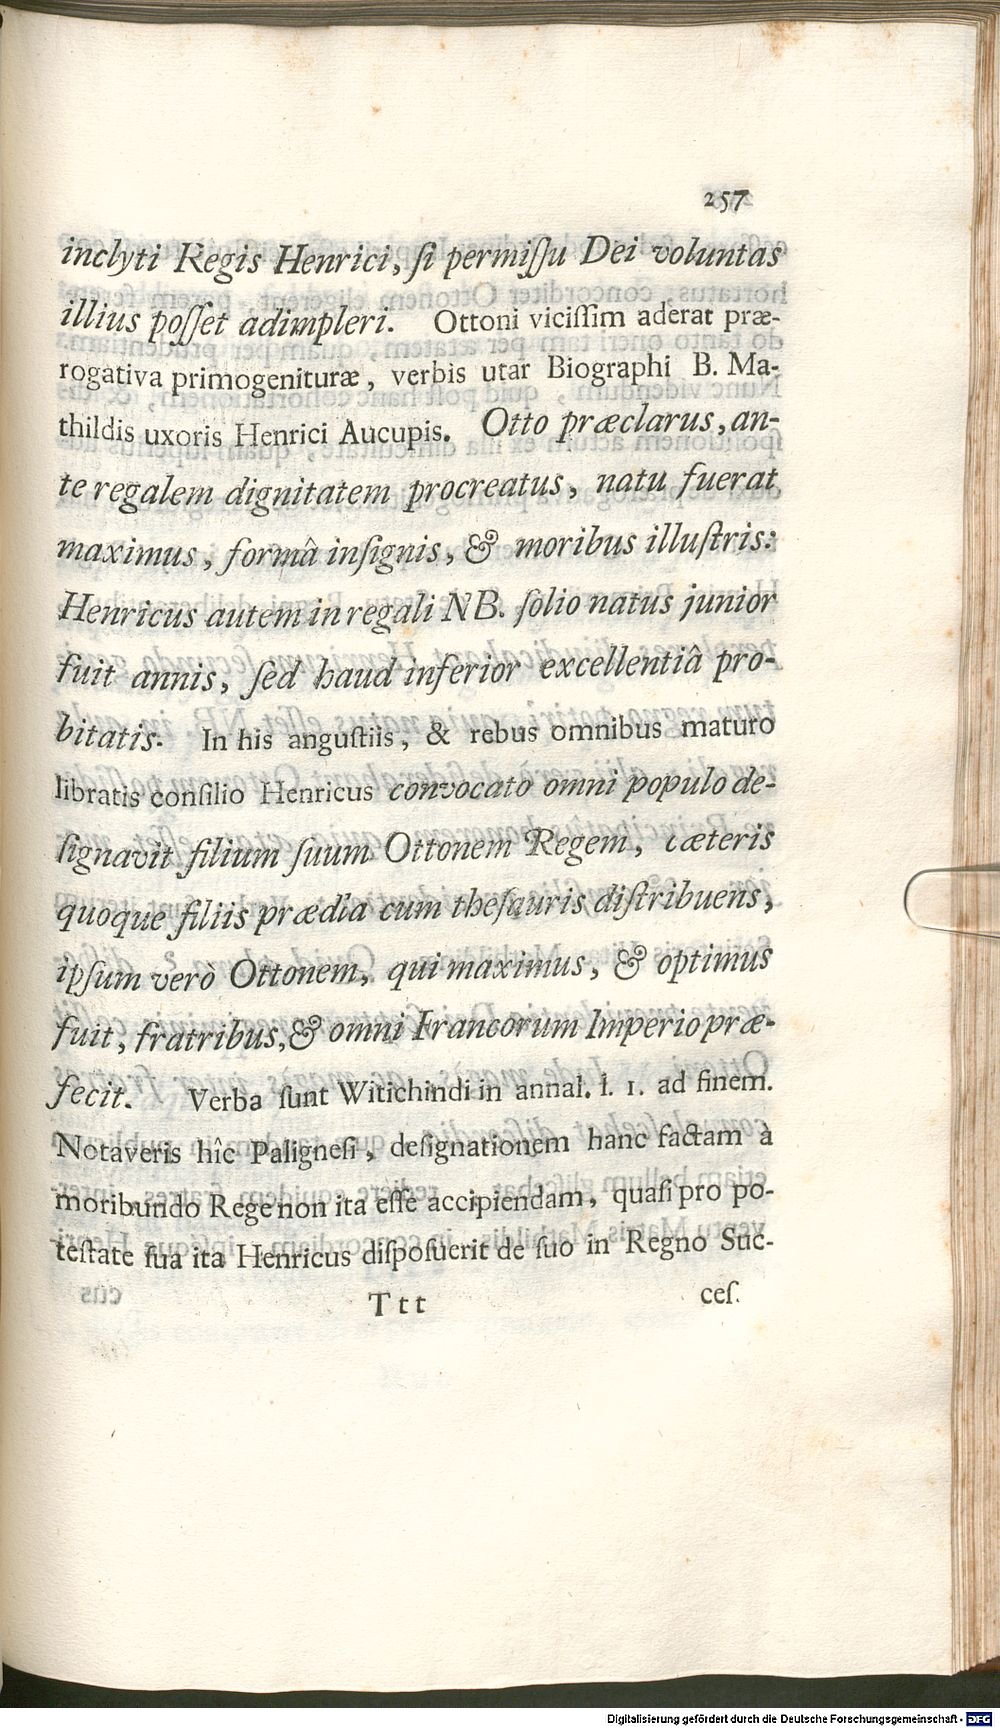 257
inclyti Regis Henrici, ſi permiſſu Dei voluntas
illius poſſet adimpleri. Ottoni viciſſim aderat præ-
rogativa primogenituræ, verbis utar Biographi B. Ma-
thildis uxoris Henrici Aucupis. Otto præclarus, an-
te regalem dignitatem procreatus, natu fuerat
maximus, formâ inſignis, & moribus illuſtris:
Henricus autem in regali NB. ſolio natus junior
fuit annis, ſed haud inferior excellentiâ pro-
bitatis. In his anguſtiis, & rebus omnibus maturo
libratis conſilio Henricus convocato omni populo de-
ſignavit filium ſuum Ottonem Regem, cæteris
quoque filiis prædia cum theſauris diſtribuens,
ipſum verò Ottonem, qui maximus, & optimus
fuit, fratribus, & omni Francorum Imperio præ-
fecit. Verba ſunt Witichindi in annal. l. 1. ad finem.
Notaveris hîc Palignesi, deſignationem hanc factam à
moribundo Rege non ita eſſe accipiendam, quaſi pro po-
teſtate ſua ita Henricus diſpoſuerit de ſuo in Regno Suc-
Ttt ceſ.
Digitalisierung gefördert durch die Deutsche Forschungsgemeinschaft - DFG